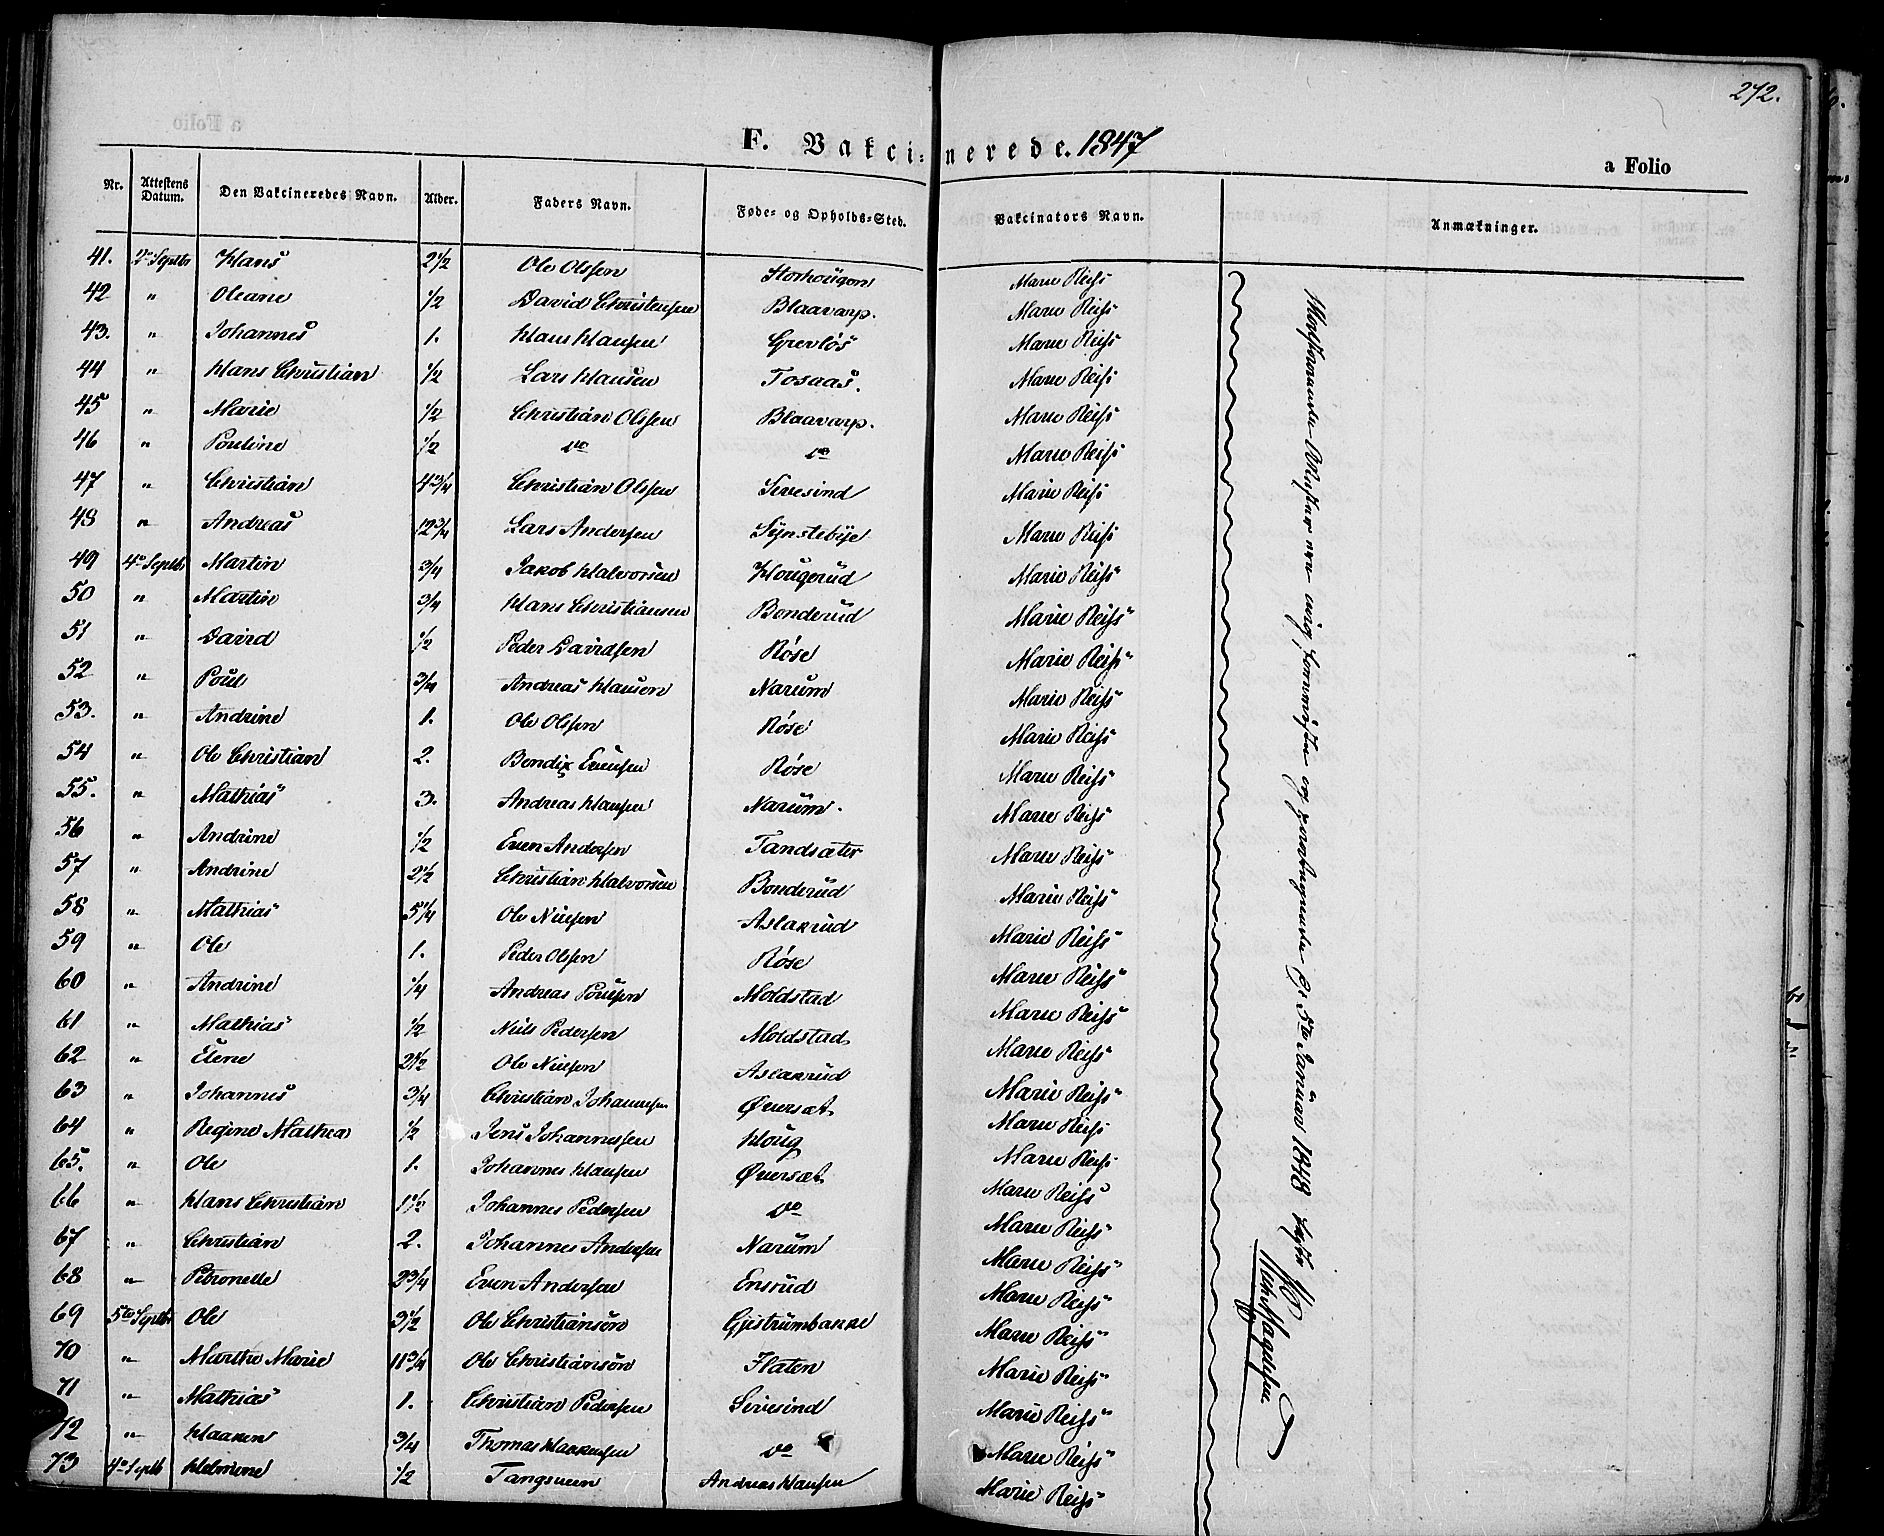 272.
F. Vakcinerede. 1847
a Folio
Nr. Attestens Datum. Den Vakcineredes Navn. Alder. Faders Navn. Føde- og Opholds-Sted. Vakcinators Navn. Anmærkninger.
41. 2de Septb Hans 2 1/2 Ole Olssen Marie Reiss
42 " Oleane 1/2 David Christensen Blaavarp. Marie Reiss
43. " Johannes 1. Hans Hansen Grevlös Marie Reiss
44 " Hans Christian 1/2 Lars Hansen Tosaas. Marie Reiss
45 " Marie 1/2 Christian Olssen Blaavarp. Marie Reiss
46 " Pouline 1/2 do do Marie Reiss
47 " Christian 4 3/4 Christian Olssen Sivesind Marie Reiss
48 " Andreas 12 3/4 Lars Andersen Synstebye Marie Reiss
49 4de Septb Martin 3/4 Jakob Halvorsen Hougerud Marie Reiss
50 " Martin 3/4 Hans Christiansen Bonderud Marie Reiss
51 " David 1/2 Peder Davidsen Röse Marie Reiss
52 " Poul 3/4 Andreas Hansen Narum Marie Reiss
53. " Andrine 1. Ole Olssen Röse Marie Reiss
54 " Ole Christian 2. Bendix Evensen Röse Marie Reiss
55. " Mathias 3. Andreas Hansen Narum. Marie Reiss
56 " Andrine 1/2 Even Andersen Tandsæter Marie Reiss
57 " Andrine 2 1/2 Christian Halvorsen Bonderud Marie Reiss
58 " Mathias 5 1/4 Ole Nielsen Aslakrud Marie Reiss
59 " Ole 1. Peder Olssen Röse Marie Reiss
60 " Andrine 1/4 Andreas Poulsen Moldstad Marie Reiss
61 " Mathias 1/2 Niels Pedersen Moldstad Marie Reiss
62 " Elene 2 1/2 Ole Nielsen Aslakrud Marie Reiss
63 " Johannes 3/4 Christian Johannesen Øversæt Marie Reiss
64 " Regine Mathea 1/2 Jens Johannessen Houg Marie Reiss
65. " Ole 1. Johannes Hansen Øversæt Marie Reiss
66 " Hans Christian 1 1/2 Johannes Pedersen do Marie Reiss
67 " Christian 2. Johannes Andersen Narum Marie Reiss
68 " Petronelle 2 3/4 Even Andersen Ensrud Marie Reiss
69 5te Septb Ole 3 1/2 Ole Christiansön Gjestrumbakke Marie Reiss
70 " Marthe Marie 11 3/4 Ole Christiansön Flaten Marie Reiss
71 " Mathias 1. Christian Pedersen Sivesind Marie Reiss
72 " Haaken 3/4 Thomas Haakensen do Marie Reiss
73 4de Septb Helmine 1/2 Tangsveen Andreas Hansen Marie Reiss
5te Januar 1848